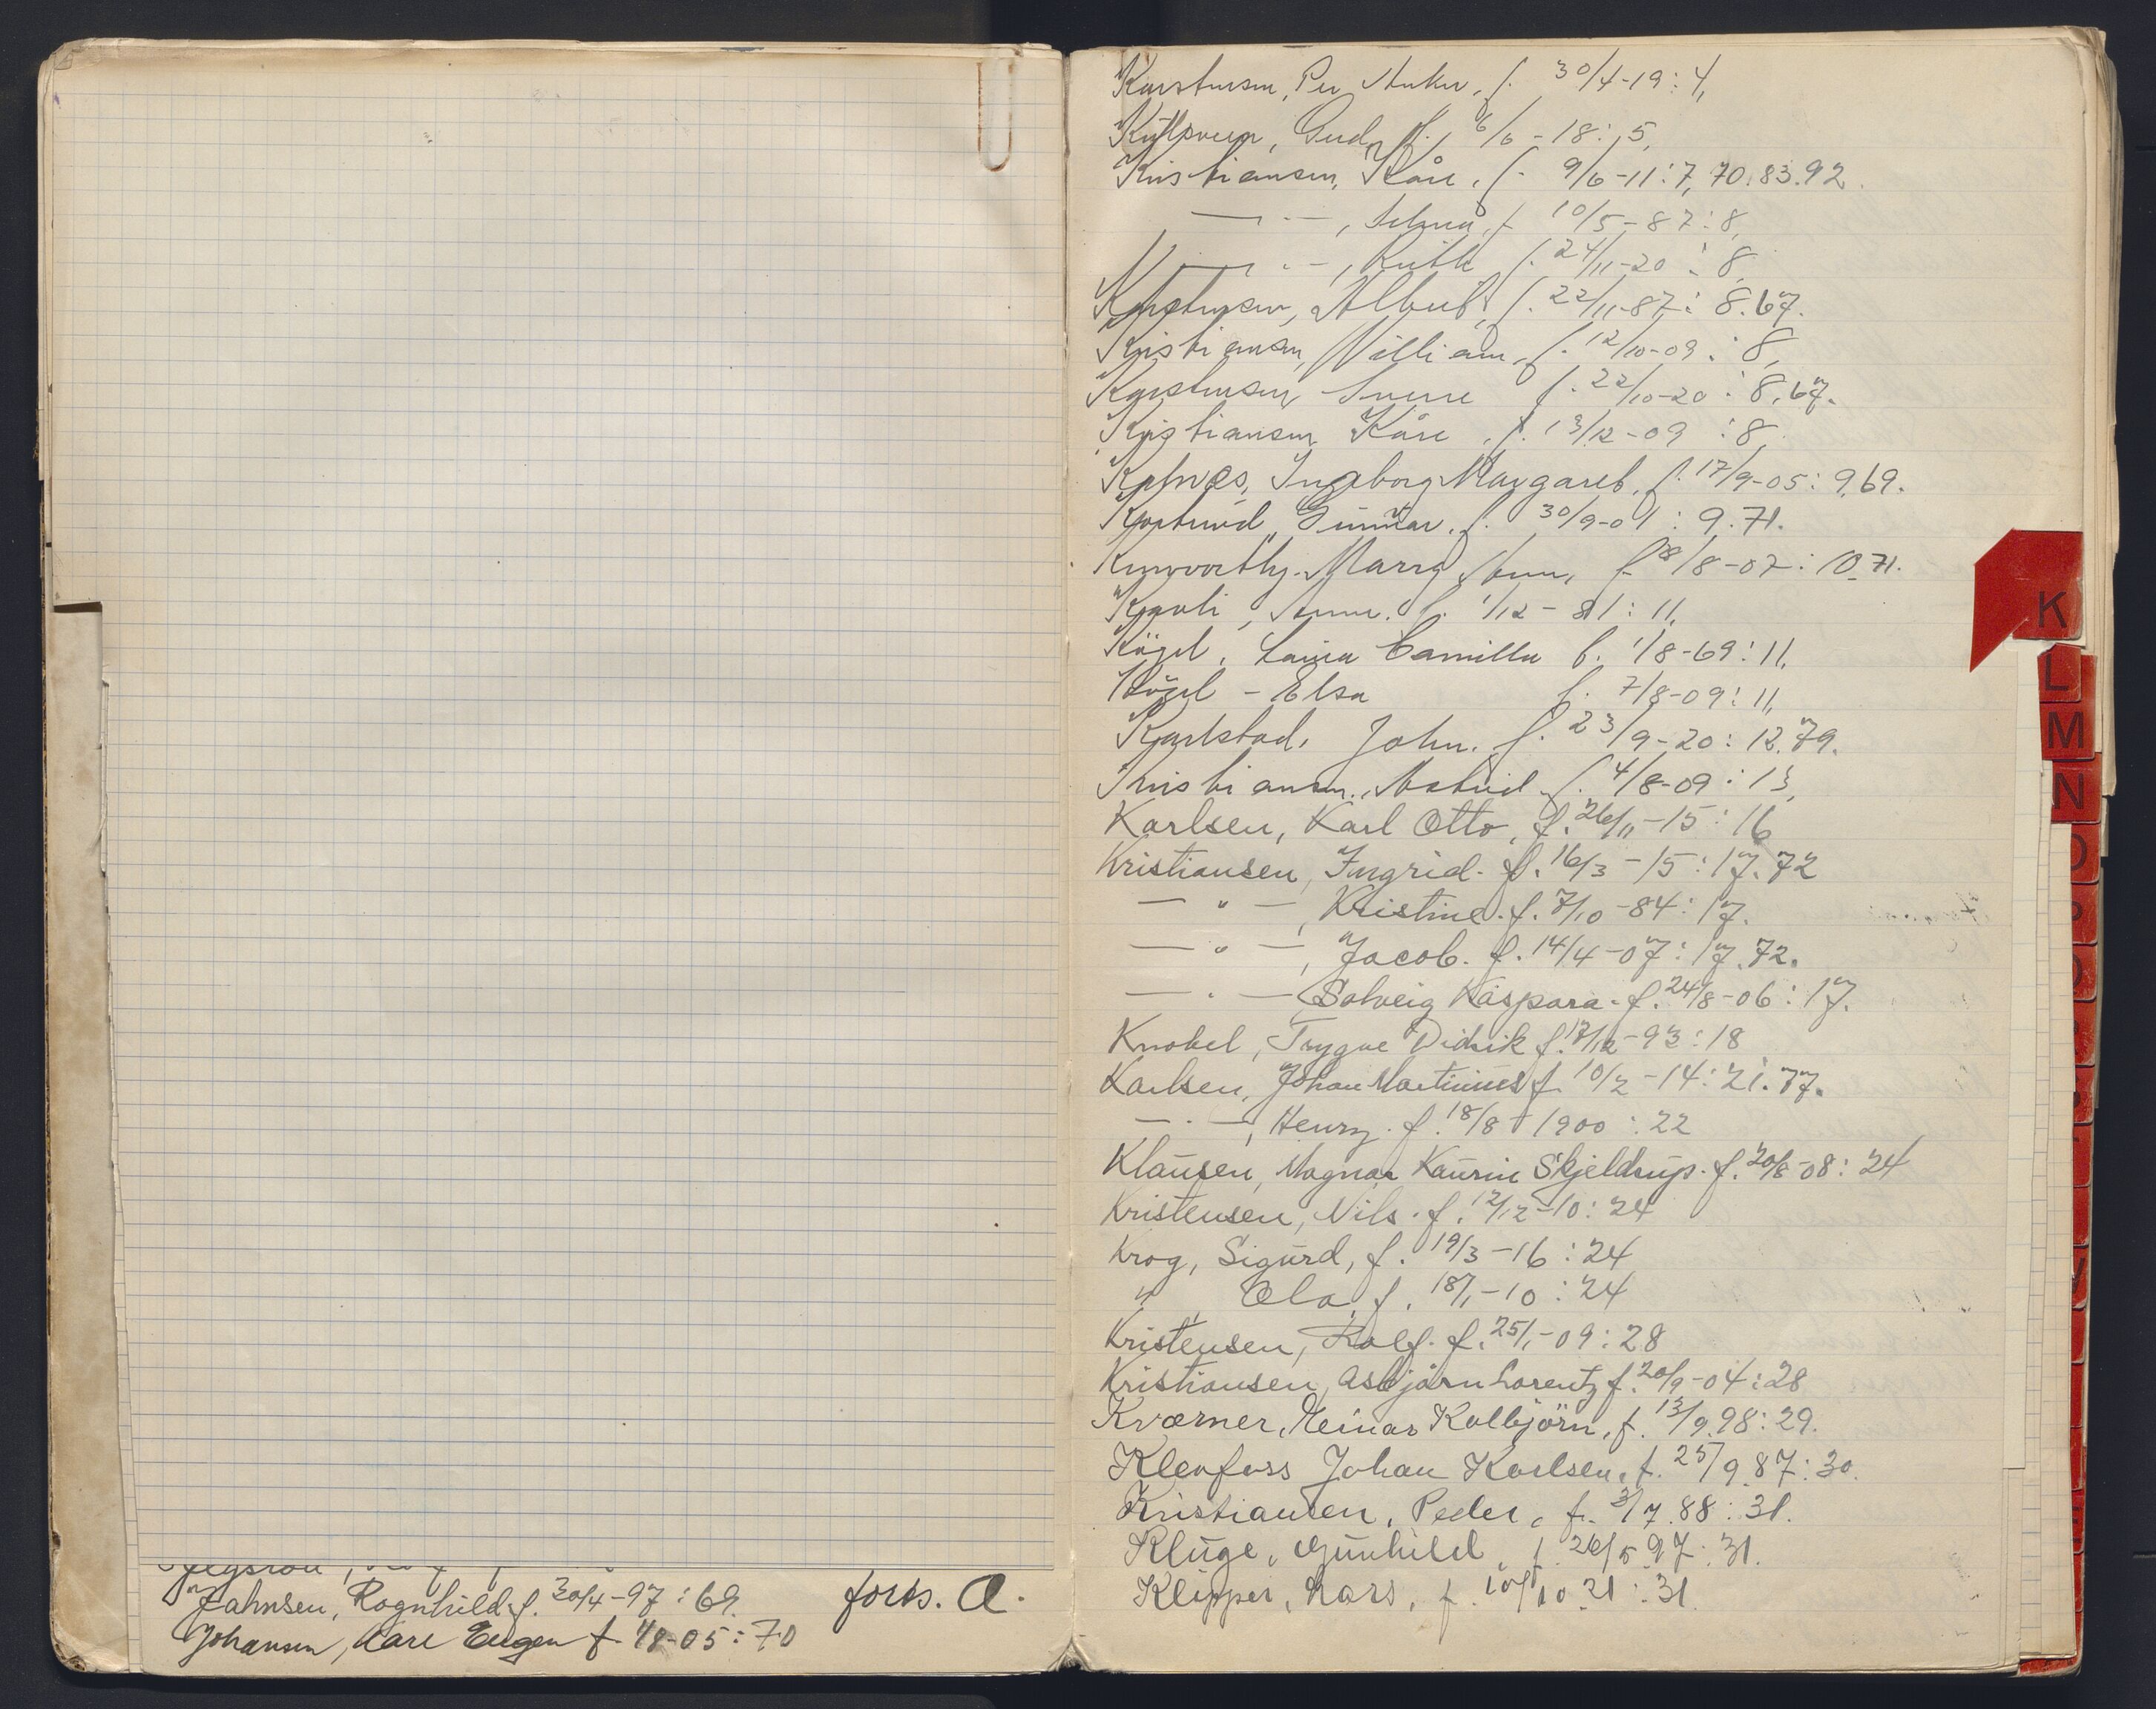 Jahnsen, Ragnhild. f. 30/4-97 : 69.
forts. a.
Johansen, Carl Eugen f. -05 : 70
f. 30/4-19 : 4,
f. 6/6 - 18 : 5,
Kristiansen, Kåre, f. 9/6-11 : 7, 70. 83. 92.
— " —, Selma, f. 10/5-87 : 8,
— " —, Ruth f. 24/11-20 : 8,
Albert, f. 22/11-87 : 8. 67.
Kristiansen, William, f. 12/10-09 : 8,
Karstensen, Sverre f. 22/10-20 : 8, 67.
Kristiansen Kåre, f. 13/12-09 : 8,
Ingeborg Margaret, f. 17/9-05 : 9, 69.
Gunnar, f. 30/9-01 : 9. 71.
Kenworthy, f. /8-07 : 10. 71.
f. 1/12 - 81 : 11,
Kögel, Laura Camilla f. 1/8-69 : 11,
Kögel - Elsa f. 7/8-09 : 11,
Karlstad, John. f. 23/9-20 : 12. 79.
Kristiansen, Astrid f. 4/8-09 : 13,
Karlsen, Karl Otto, f. 26/11-15 : 16
Kristiansen, Ingrid. f. 16/3-15 : 17. 72
— " —, Kristine. f. 7/10-84 : 17.
— " —, Jacob. f. 14/4-07 : 17. 72.
— " —, Solveig Kaspara. f. 24/8-06 : 17.
Knobel, Trygve Didrik f. 17/12-93 : 18
Karlsen, Johan Martinius f. 10/2-14 : 21. 77.
— " —, Henry. f. 18/8 1900 : 22
Klausen, Magnar Kaurin Skjeldrup. f. 20/8-08 : 24
Kristensen, Nils. f. 12/12-10 : 24
Krog, Sigurd, f. 19/3-16 : 24
" Ola, f. 18/1-10 : 24
Kristensen, Rolf. f. 25/1-09 : 28
Kristiansen, Asbjørn Lorentz f. 20/9-04 : 28
Kværner, Reinar Kolbjörn, f. 13/9.98 : 29.
Klenfoss Johan Karlsen, f. 25/9 87 : 30.
Kristiansen, Peder, f. 3/7.88 : 31.
Klüge, Gunhild, f. 26/5 97 : 31.
Klipper, Lars, f. 10/10 21 : 31.
K
L
M
N